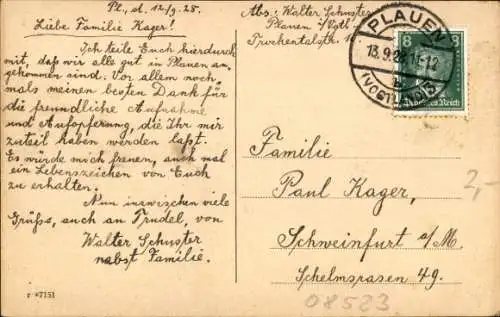 Pl., d. 12/9. 28.
Liebe Familie Kager!
Ich teile Euch hierdurch
mit, daß wir alle gut in Plauen an-
gekommen sind. Vor allem noch-
mals meinen besten Dank für
die freundliche Aufnahme
und Aufopferung, die Ihr mir
zuteil haben werden laßt.
Es würde mich freuen, auch mal
ein Lebenszeichen von Euch
zu erhalten.
Nun inzwischen viele
Grüße, auch an Trudel, von
Walter Schuster
nebst Familie.
r 7151
Abs: Walter Schuster
Plauen i/Vogtl.
PLAUEN
13.9.28. 11-12
(VOGTL)
8 8
Deutsches Reich
Familie
Paul Kager,
Schweinfurt a/M.
Schelmsrasen 49.
2,-
08523